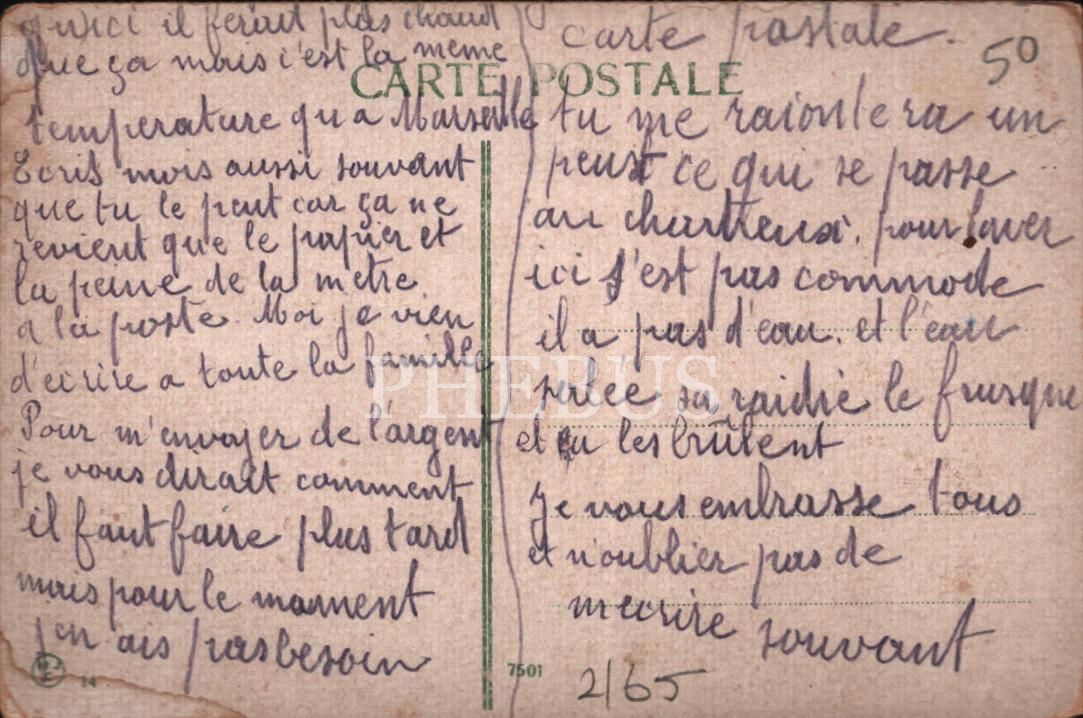 qu'ici il ferait plus chaud
que ça mais c'est la meme
temperature qu a Marseille
Ecris mois aussi souvant
que tu le peut car ça ne
revient que le papier et
la peine de la metre
a la poste. Moi je vien
d'ecrire a toute la famille
Pour m'envoyer de l'argent
je vous dirait comment
il faut faire plus tard
mais pour le moment
j'en ais pas besoin
14
CARTE POSTALE
carte postale.
50
tu me raconlera un
peus ce qui se passe
au chartreux. pour laver
ici s'est pas commode
il a pas d'eau. et l'eau
salee sa raidie le frusque
et les brûlent
Je vous embrasse tous
et n'oublier pas de
mecrire souvant
7501
2/65
PHEBUS